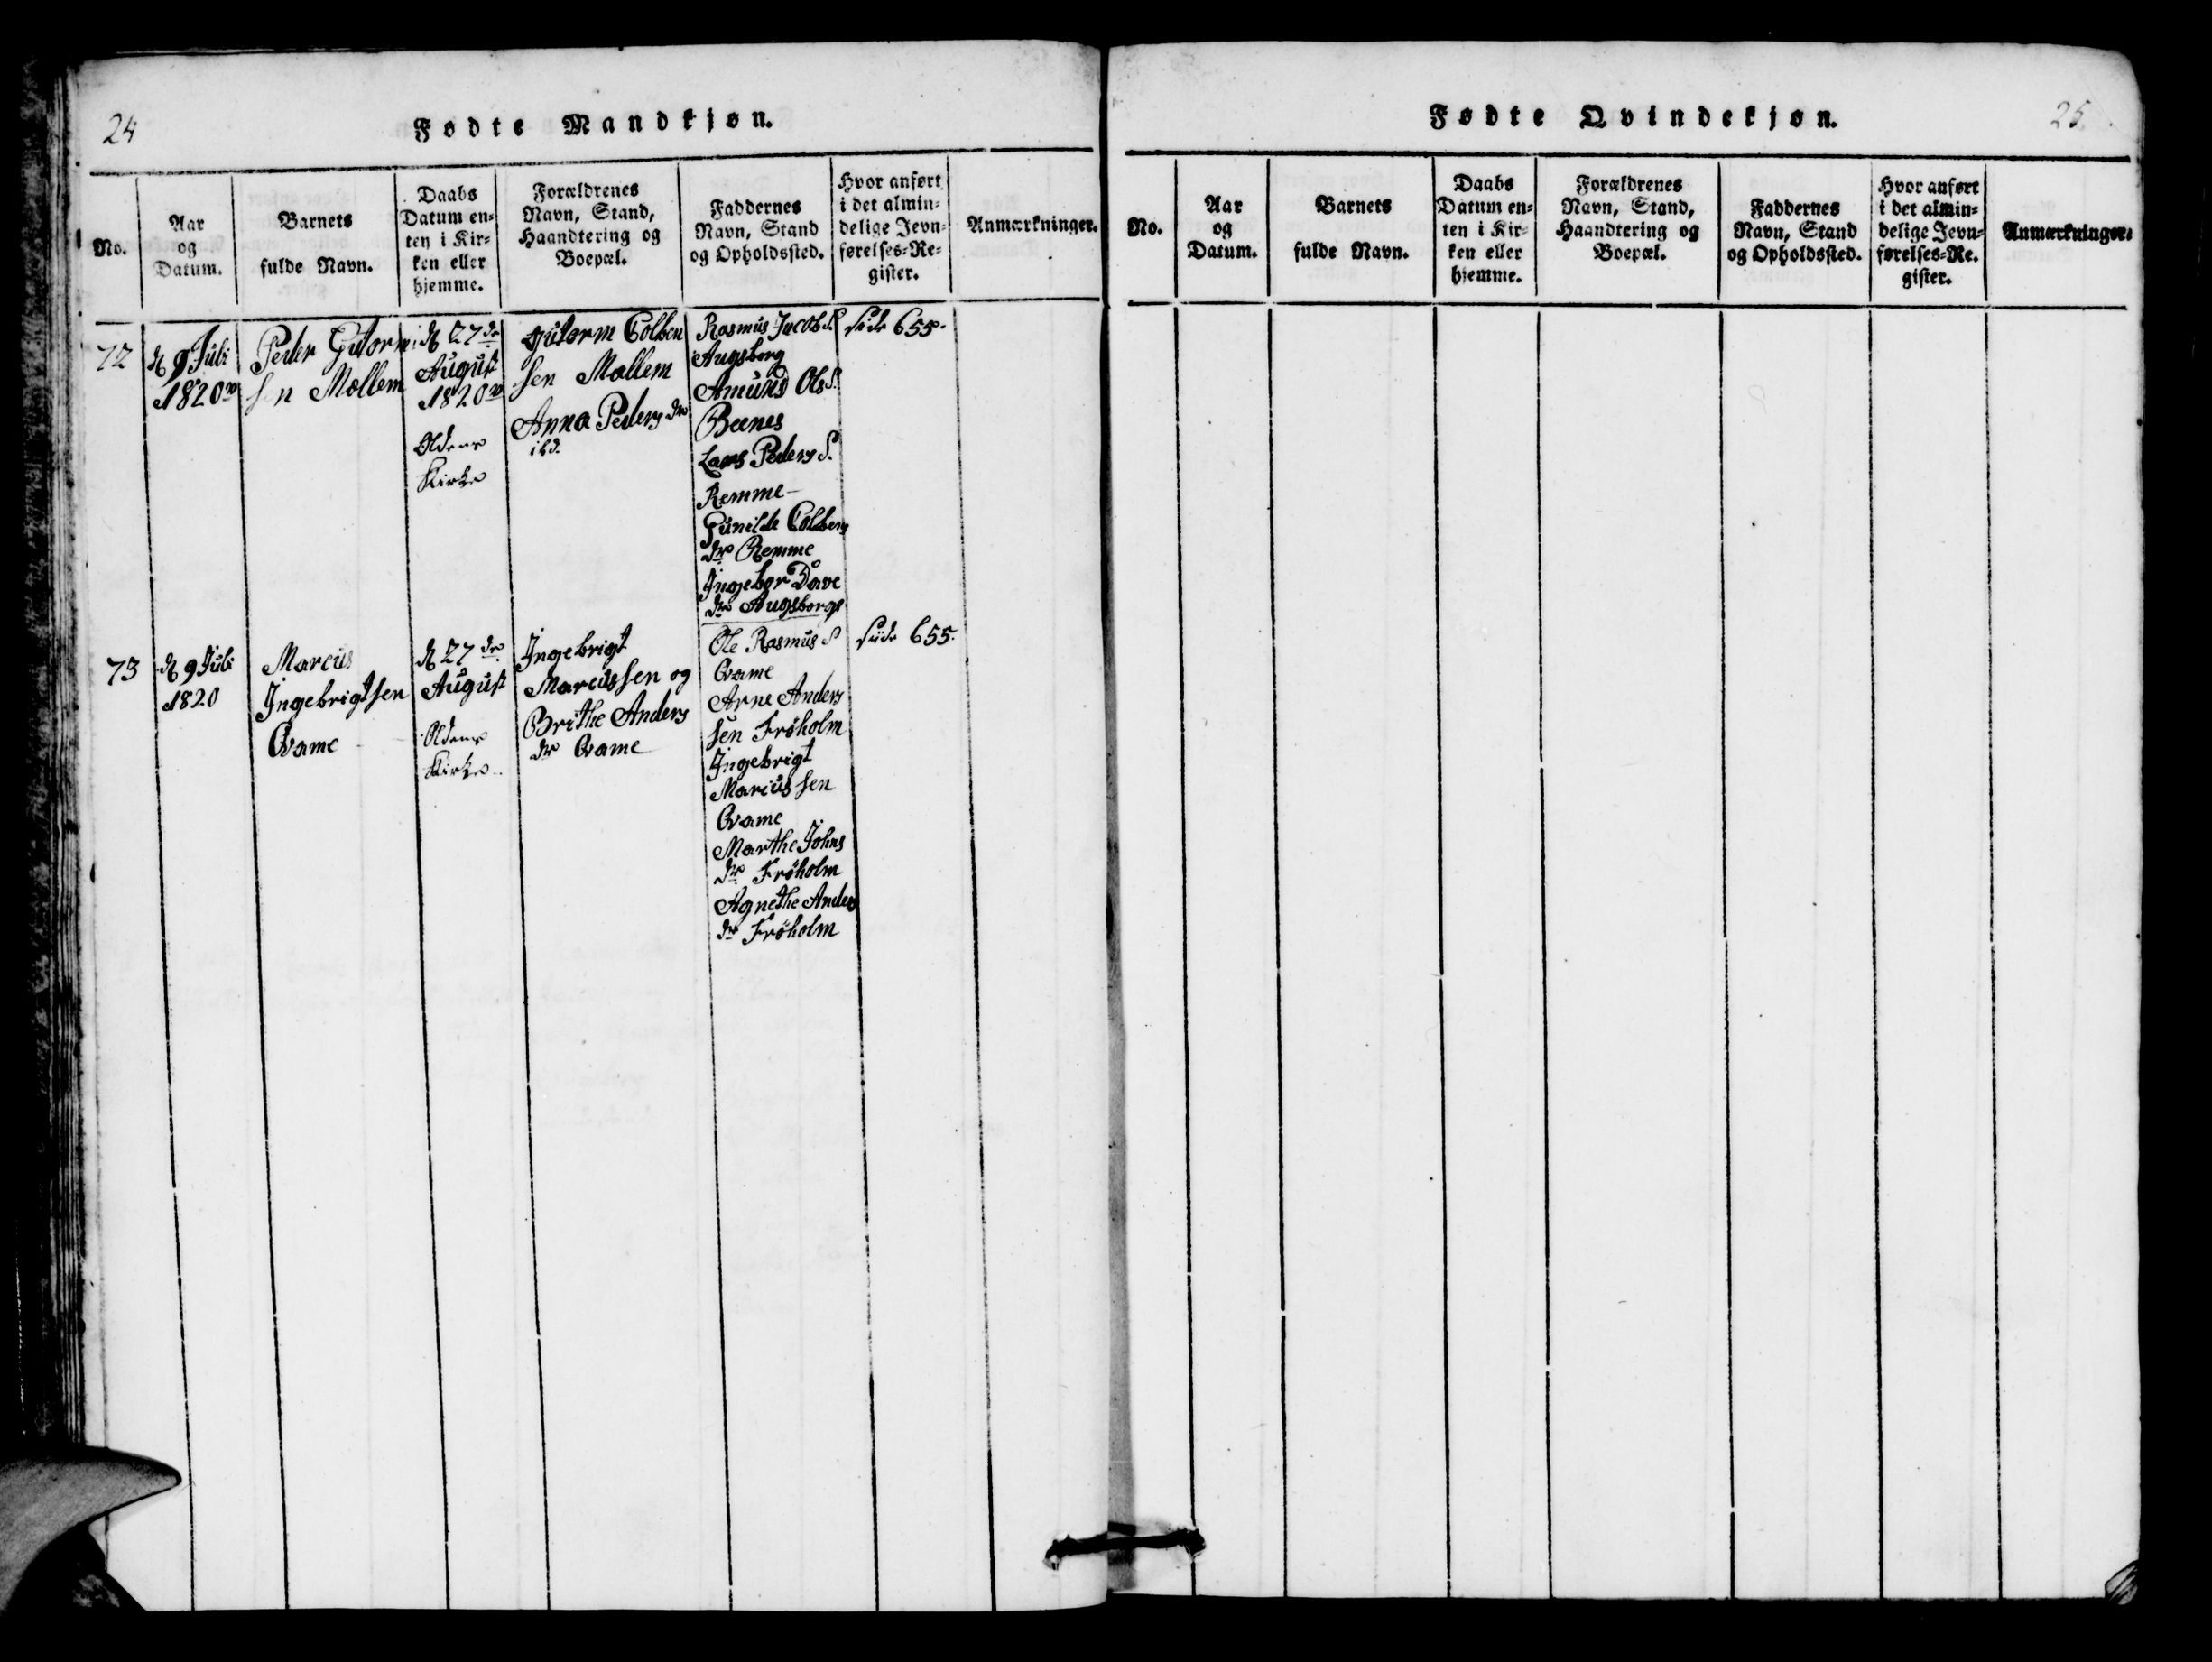 24
Fødte Mandkjøn.
No.
Aar
og
Datum.
Barnets
fulde Navn.
Daabs
Datum en-
ten i Kir-
ken eller
hjemme.
Forældrenes
Navn, Stand,
Haandtering og
Boepæl.
Faddernes
Navn, Stand
og Opholdssted.
Hvor anført
i det almin-
delige Jevn-
førelses-Re-
gister.
Anmærkninger.
72
d 9 Juli
1820
Peder Gutorm
sen Mællem
d 27de
August
1820
Oldens
Kirke
Gutorm Colben
sen Mællem
Anna Peders dr
ibd.
Rasmus Jacob S.
Augsborg
Amund Ols S.
Beenes
Lars Peders S.
Remme
Gunilde Colbens
dr Remme
Ingebor Dave
dr Augsborg
side 655.
73
d 9 Juli
1820
Marcus
Ingebrigtsen
Qvame
d 27de
August
Oldens
Kirke
Ingebrigt
Marcussen og
Brithe Anders
dr Qvame
Ole Rasmus S
Qvame
Arne Anders
sen Frøholm
Ingebrigt
Marcussen
Qvame
Marthe Johns
dr Frøholm
Agnethe Anders
dr Frøholm
side 655.
25
Fødte Qvindekjøn.
No.
Aar
og
Datum.
Barnets
fulde Navn.
Daabs
Datum en-
ten i Kir-
ken eller
hjemme.
Forældrenes
Navn, Stand,
Haandtering og
Boepæl.
Faddernes
Navn, Stand
og Opholdssted.
Hvor anført
i det almin-
delige Jevn-
førelses-Re.
gister.
Anmærkninger.